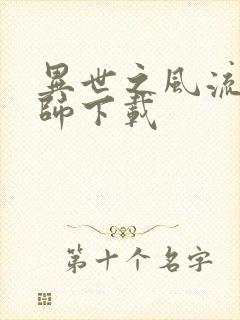 異世之風流
師下載
第十个名字